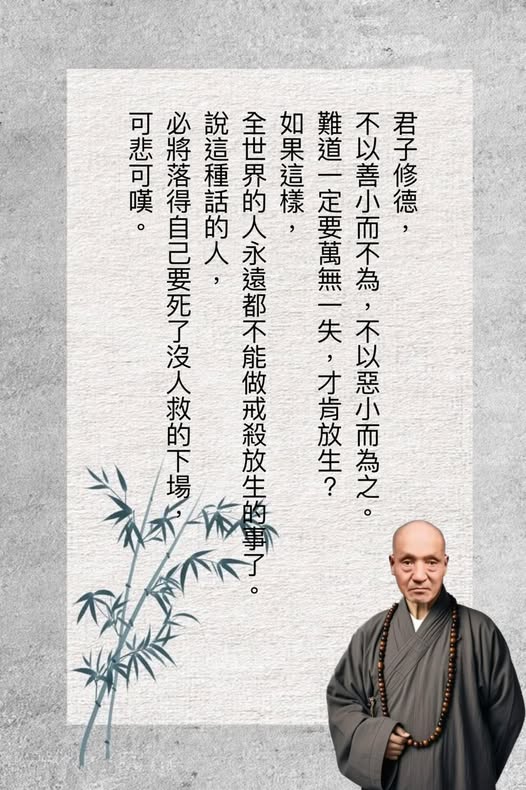 君子修德，
不以善小而不為，不以惡小而為之。
難道一定要萬無一失，才肯放生？
如果這樣，
全世界的人永遠都不能做戒殺放生的事了。
說這種話的人，
必將落得自己要死了沒人救的下場，
可悲可嘆。